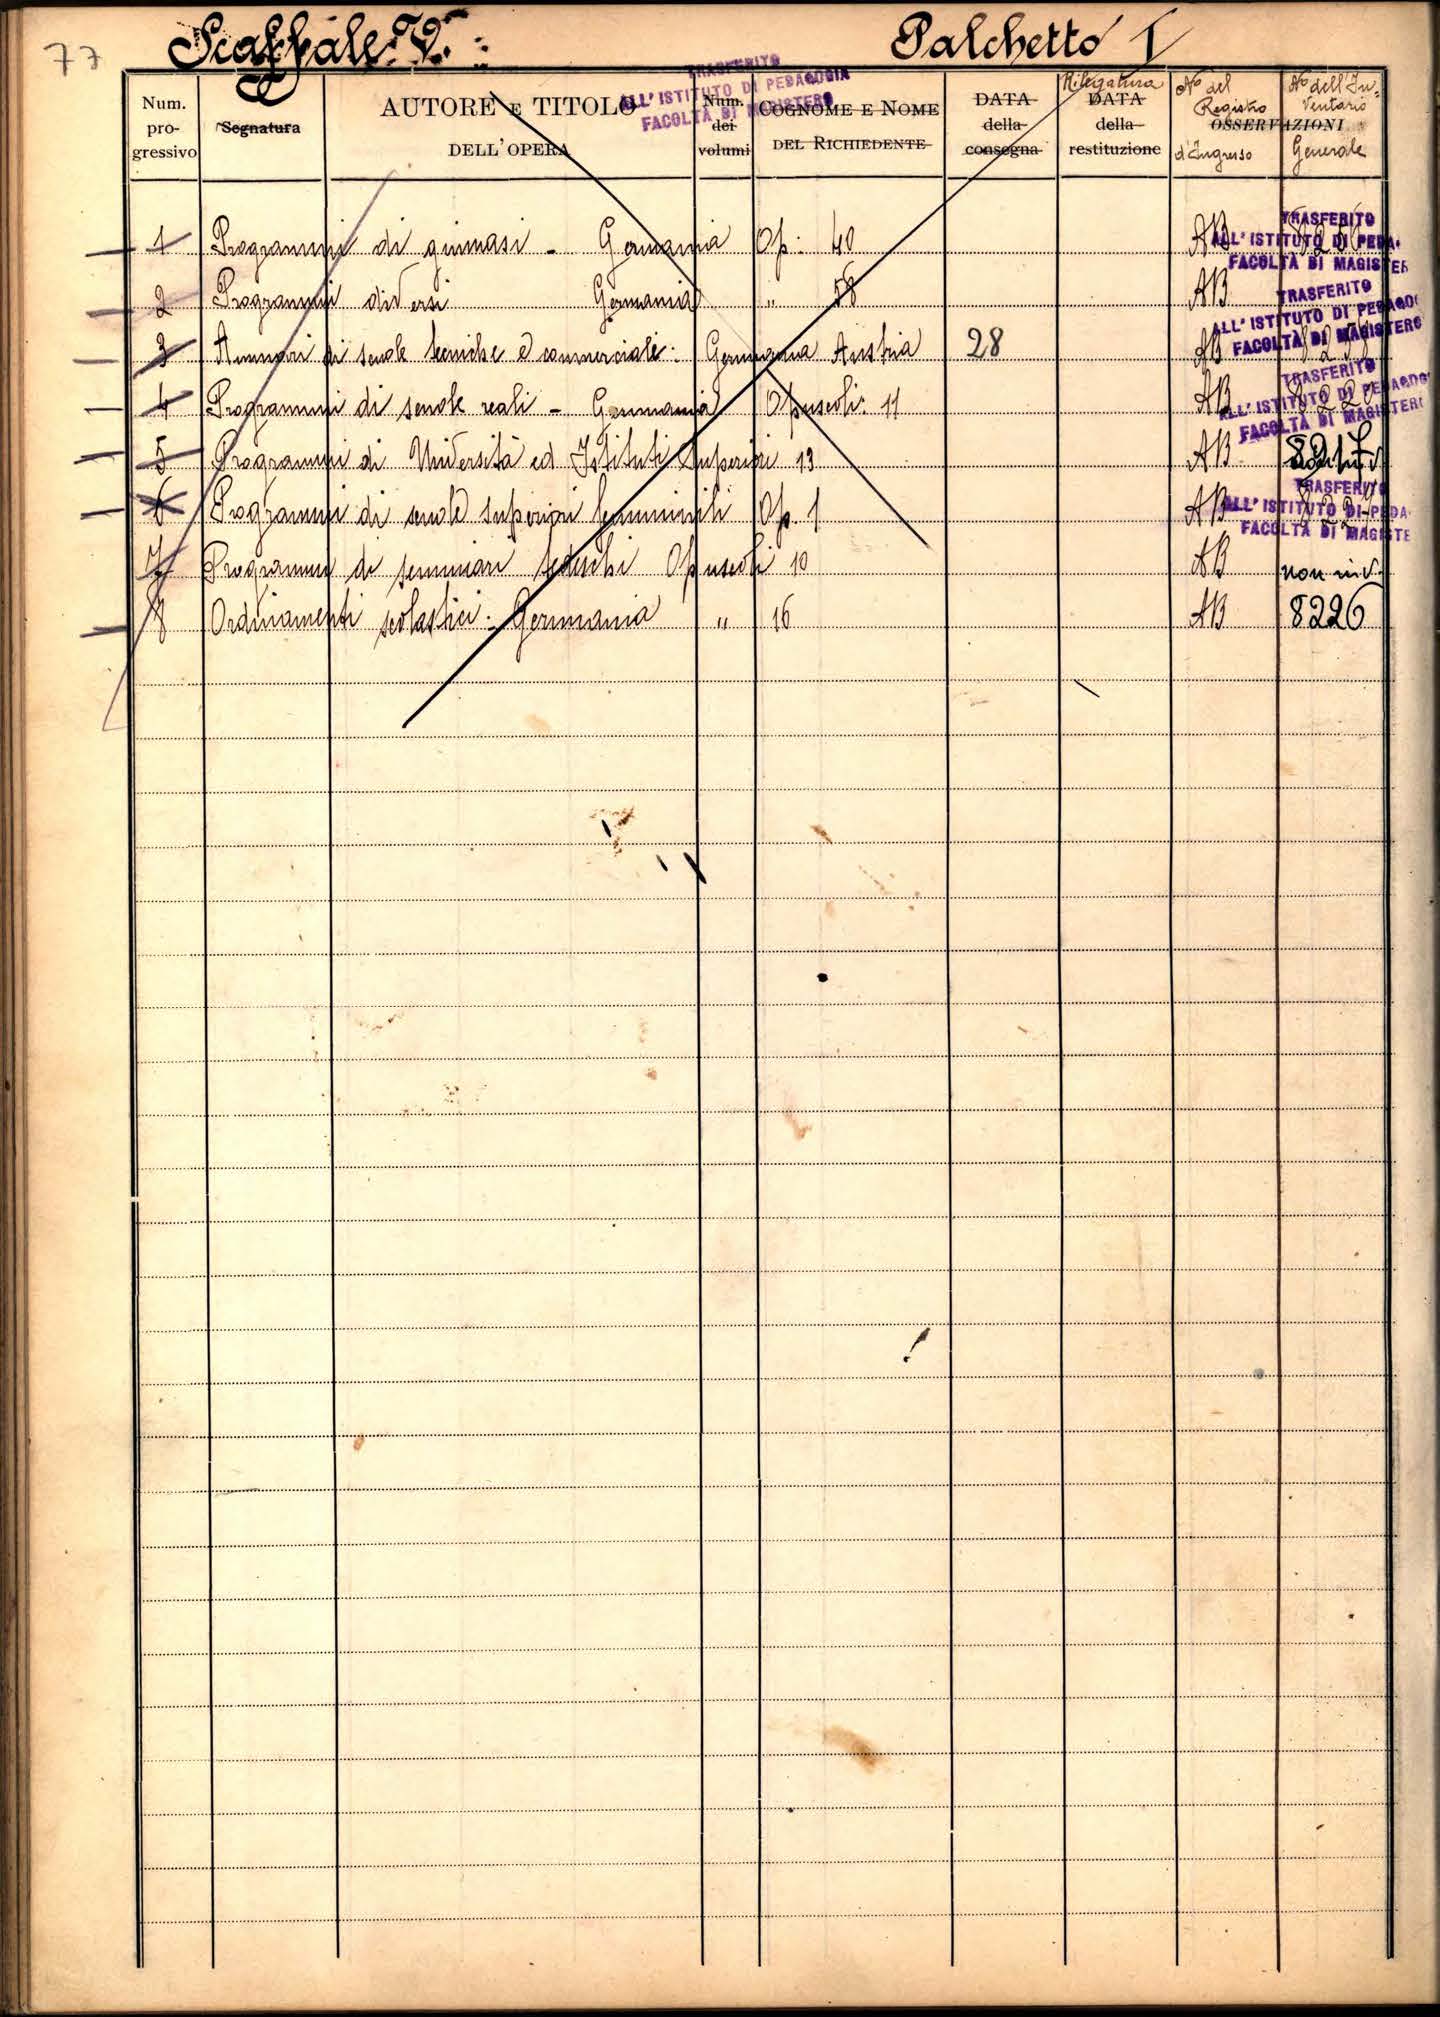 77
Scaffale: V. Palchetto I
TRASFERITO
ALL'ISTITUTO DI PEDAGOGIA
FACOLTÀ DI MAGISTERO
Num. progressivo
Segnatura
AUTORE E TITOLO DELL'OPERA
Num. dei volumi
COGNOME E NOME DEL RICHIEDENTE
DATA della consegna
Rilegatura
DATA della restituzione
OSSERVAZIONI
N° del Registro d'Ingresso
N° dell'Inventario Generale
1 Programmi di ginnasi - Germania Op: 40 AB
TRASFERITO
ALL'ISTITUTO DI PEDA-
FACOLTÀ DI MAGISTER
2 Programmi diversi Germania " 58 AB
TRASFERITO
ALL'ISTITUTO DI PEDAGO
FACOLTÀ DI MAGISTERO
3 Annuari di scuole tecniche e commerciali: Germania Austria 28 AB
TRASFERITO
ALL'ISTITUTO DI PEDAGOG
FACOLTÀ DI MAGISTERO
4 Programmi di scuole reali - Germania Opuscoli: 11 AB
5 Programmi di Università ed Istituti Superiori 13 AB 8217
6 Programmi di scuole superiori femminili Op. 1 AB
TRASFERITO
ALL'ISTITUTO DI PEDA
FACOLTÀ DI MAGISTE
7 Programmi di seminari tedeschi Opuscoli 10 AB non inv.
8 Ordinamenti scolastici: Germania " 16 AB 8226